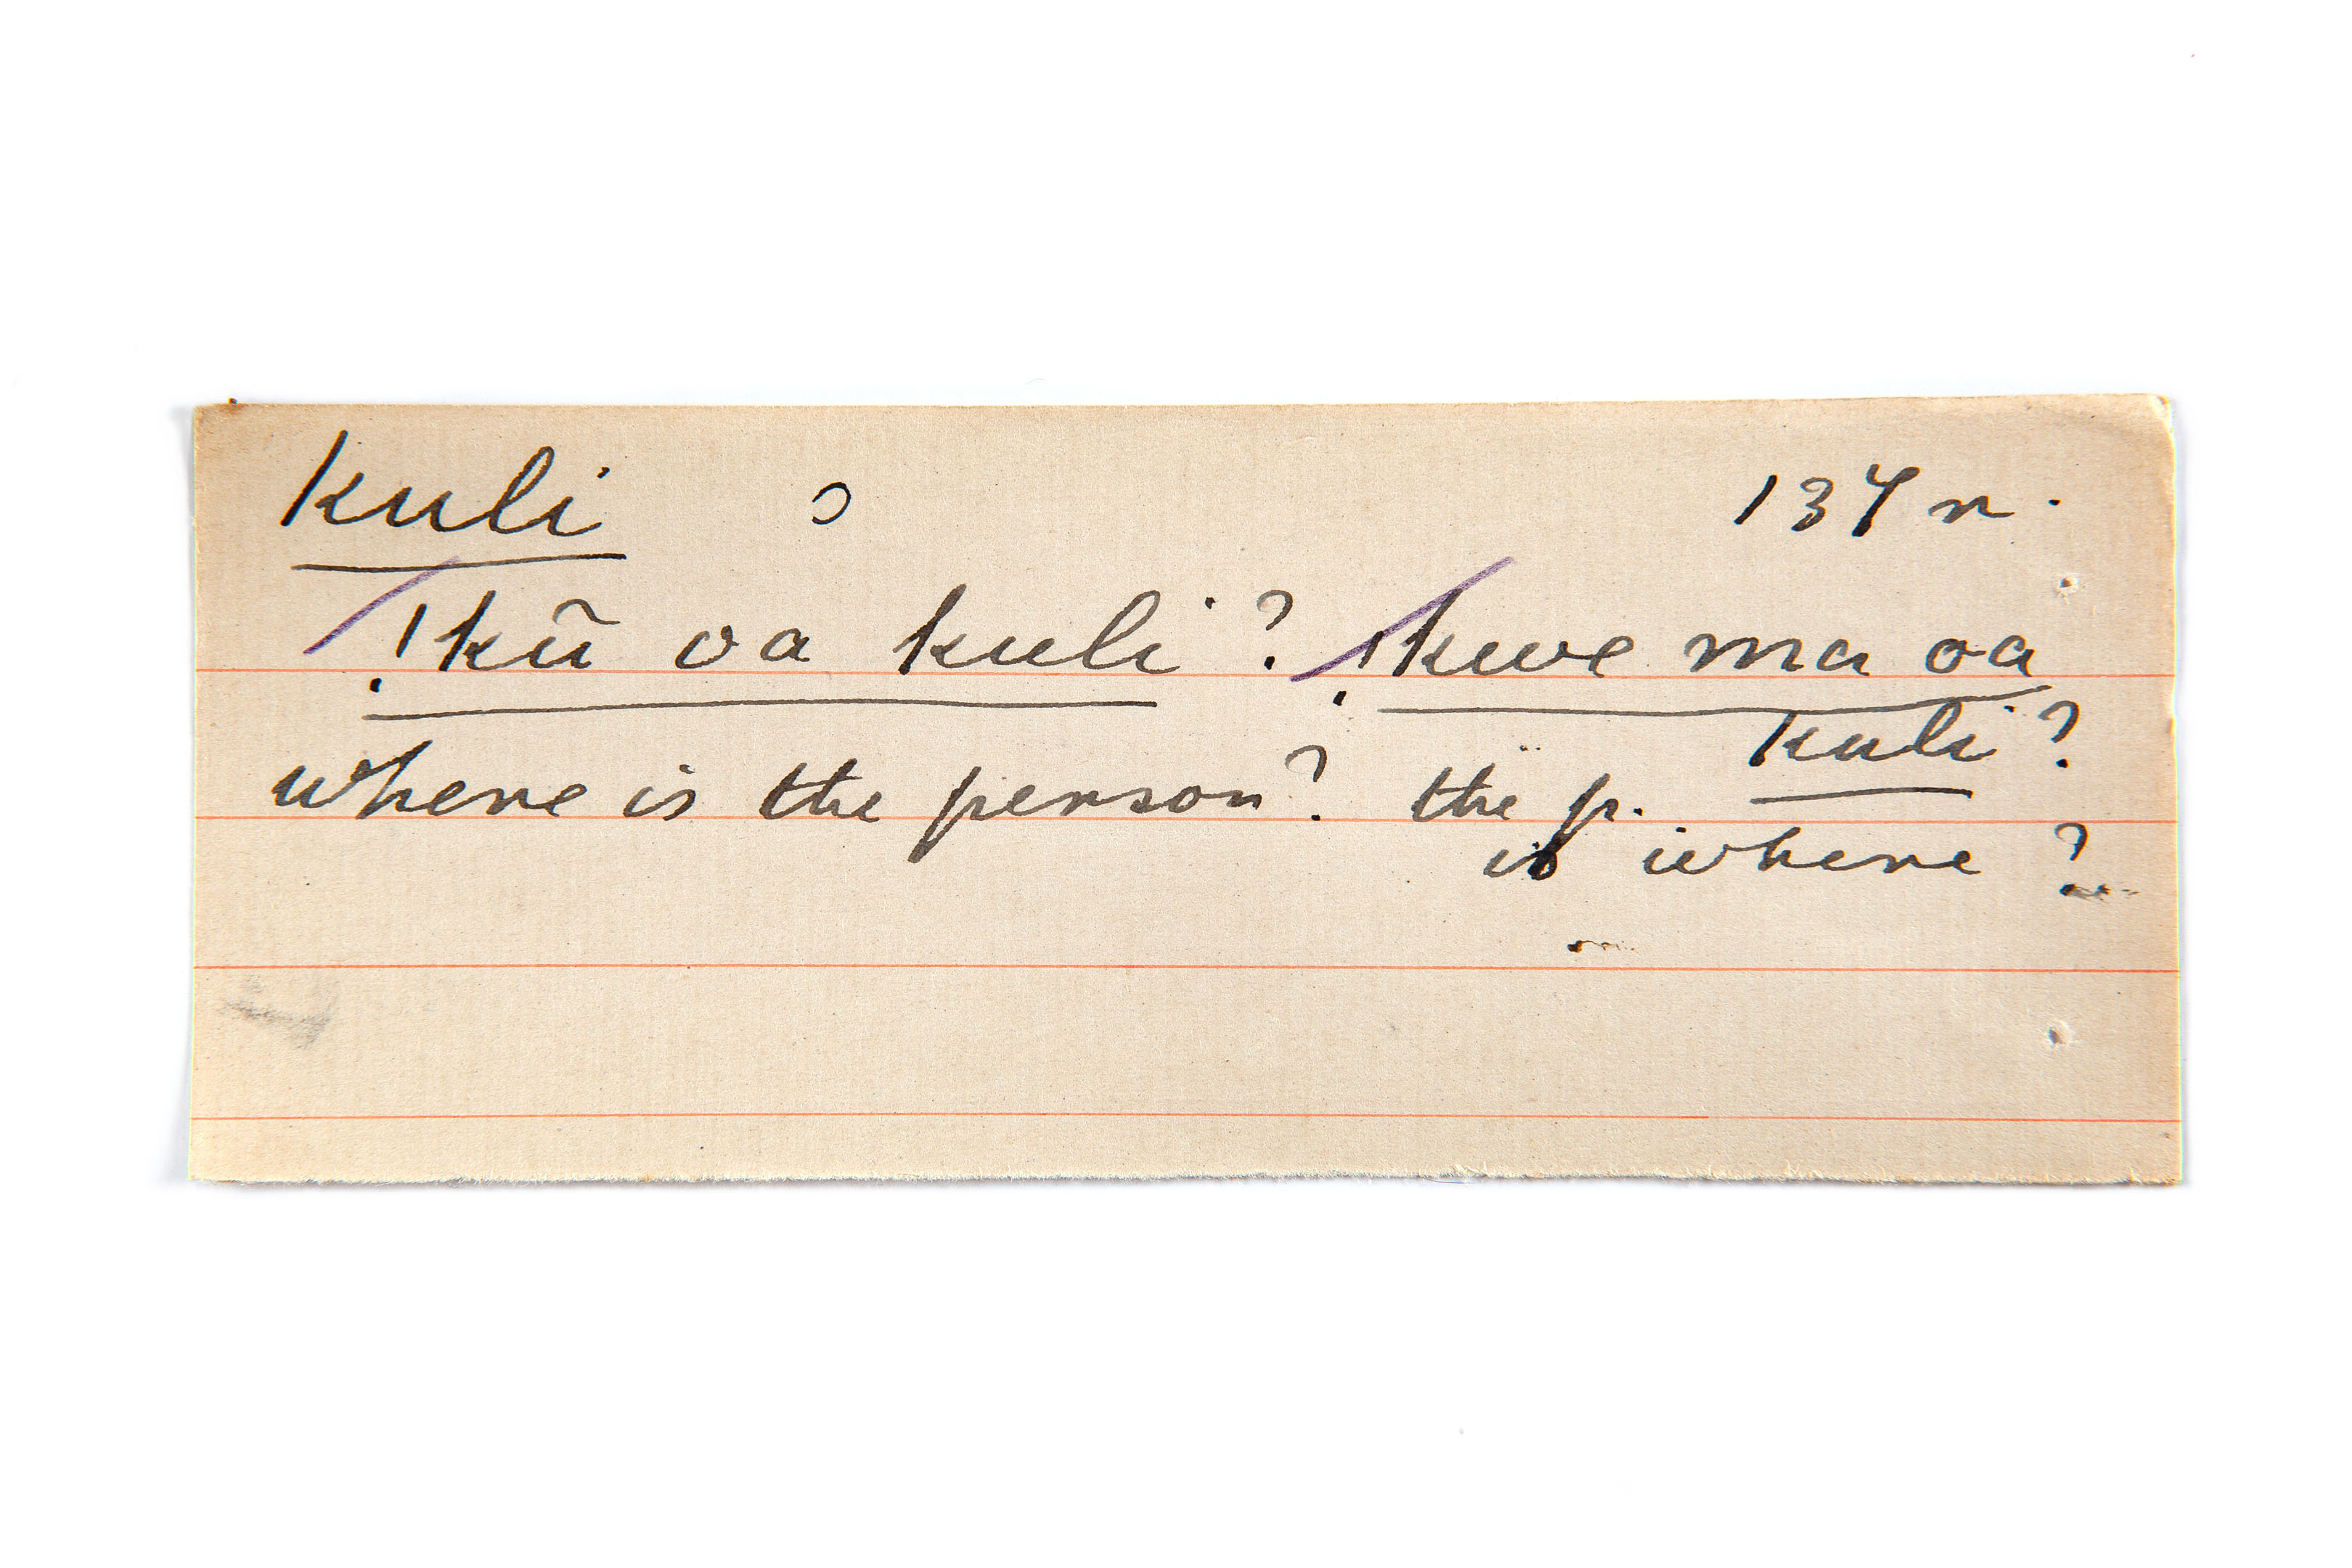 kuli ɔ 137 r.
!kũ oa kuli? !kwe ma oa
kuli?
where is the person? the p.
is where?